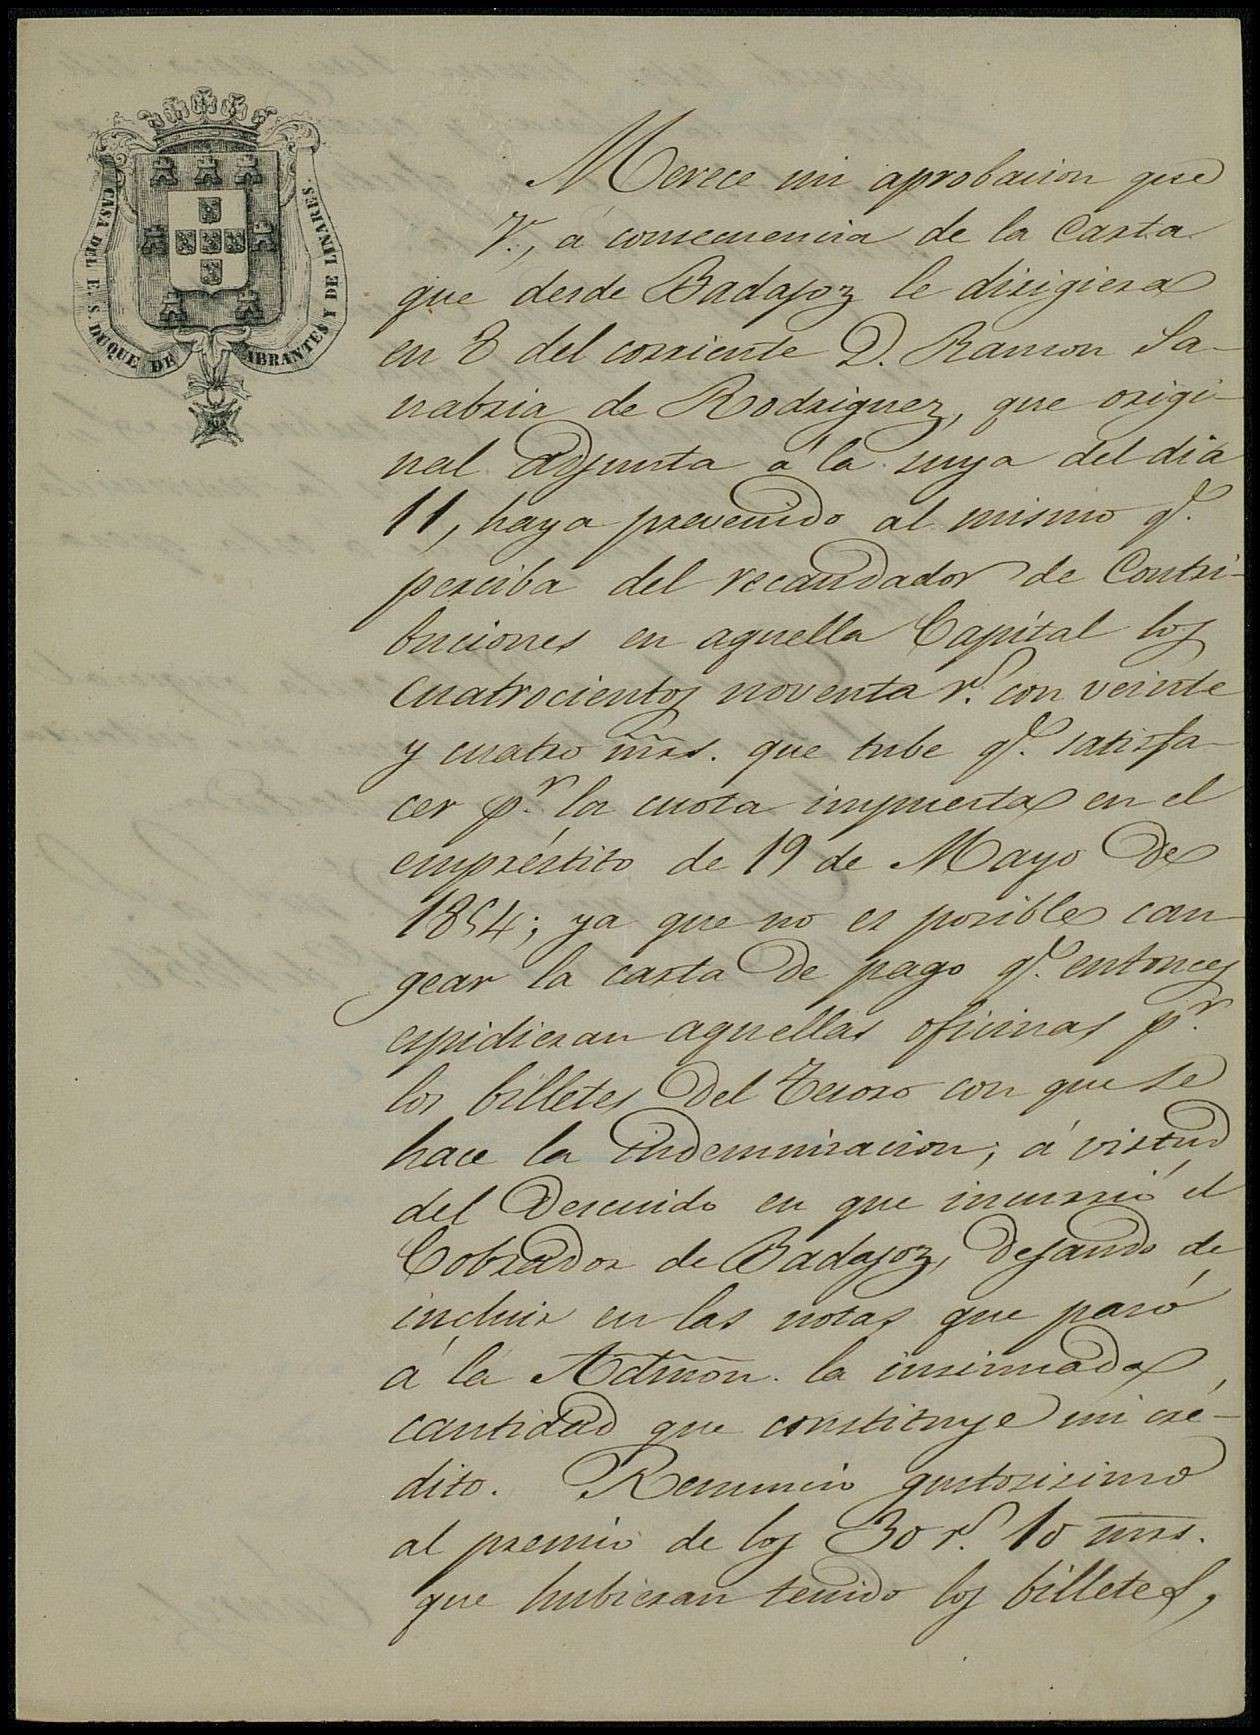 CASA DEL E. S. DUQUE DE ABRANTES Y DE LINARES.
Merece mi aprobacion que
V., á consecuencia de la Carta
que desde Badajoz le dirigiera
en 8 del corriente D. Ramon Sa-
nabria de Rodriguez, que origi-
nal adjunta á la suya del dia
11, haya prevenido al mismo q.e
perciba del recaudador de Contri-
buciones en aquella Capital los
cuatrocientos noventa r.s con veinte
y cuatro mrs. que tube q.e satisfa-
cer p.r la cuota impuesta en el
empréstito de 19 de Mayo de
1854; ya que no es posible can-
gear la carta de pago q.e entonces
espidieran aquellas oficinas p.r
los billetes del Tesoro con que se
hace la indemnisacion; á virtud
del descuido en que incurrió el
Cobrador de Badajoz, dejando de
incluir en las notas que pasó
á la Admon. la insinuada
cantidad que constituye mi cré-
dito. Renuncio gustosisimo
al premio de los 30 r.s 10 mrs.
que hubieran tenido los billetes,